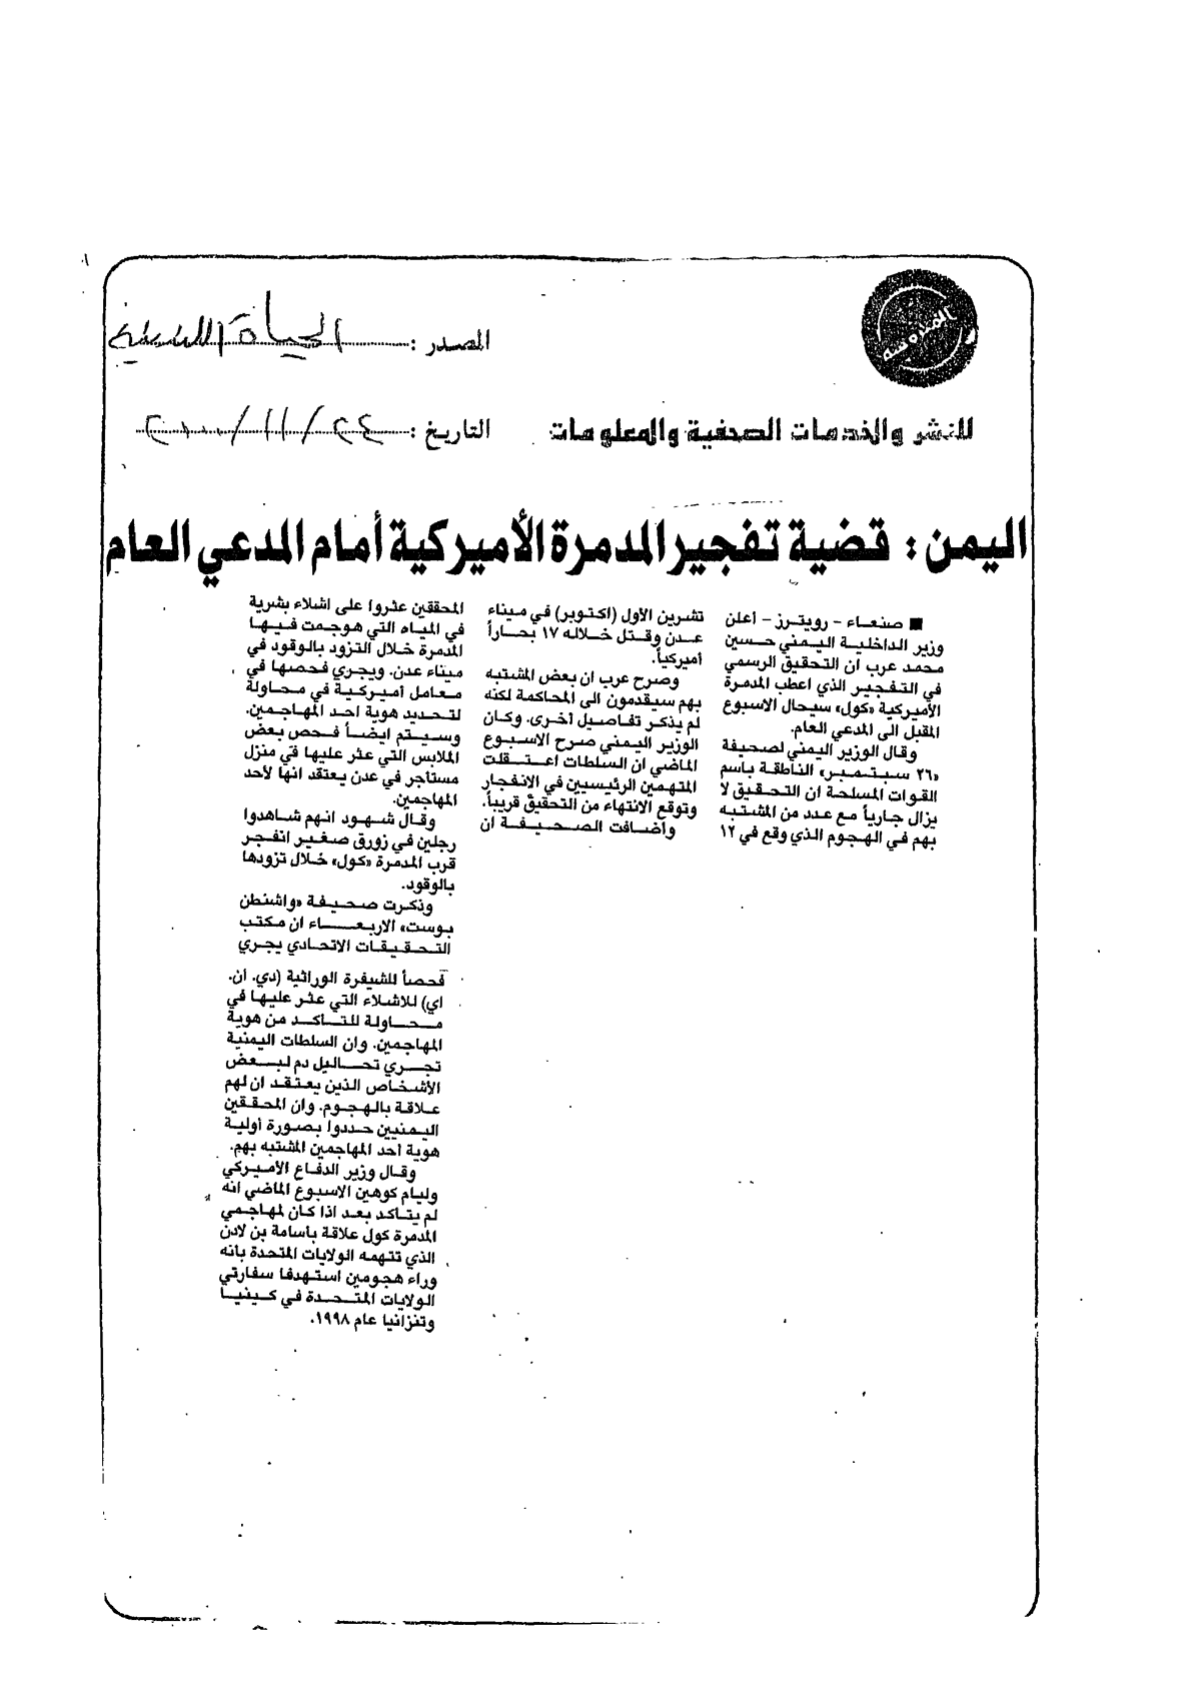 المصدر : الحياة اللندنية
للنشر والخدمات الصحفية والمعلومات
التاريخ : ٢٤/١١/٢٠٠٠
اليمن : قضية تفجير المدمرة الأميركية أمام المدعي العام
■ صنعاء - رويترز - أعلن
وزير الداخلية اليمني حسين
محمد عرب ان التحقيق الرسمي
في التفجير الذي اعطب المدمرة
الأميركية «كول» سيحال الاسبوع
المقبل الى المدعي العام.
وقال الوزير اليمني لصحيفة
«٢٦ سبتمبر» الناطقة باسم
القوات المسلحة ان التحقيق لا
يزال جارياً مع عدد من المشتبه
بهم في الهجوم الذي وقع في ١٢
تشرين الأول (اكتوبر) في ميناء
عدن وقتل خلاله ١٧ بحاراً
أميركياً.
وصرح عرب ان بعض المشتبه
بهم سيقدمون الى المحاكمة لكنه
لم يذكر تفاصيل أخرى. وكان
الوزير اليمني صرح الاسبوع
الماضي ان السلطات اعتقلت
المتهمين الرئيسيين في الانفجار
وتوقع الانتهاء من التحقيق قريباً.
وأضافت الصحيفة ان
المحققين عثروا على اشلاء بشرية
في المياه التي هوجمت فيها
المدمرة خلال التزود بالوقود في
ميناء عدن. ويجري فحصها في
معامل أميركية في محاولة
لتحديد هوية احد المهاجمين.
وسيتم ايضاً فحص بعض
الملابس التي عثر عليها في منزل
مستأجر في عدن يعتقد انها لأحد
المهاجمين.
وقال شهود انهم شاهدوا
رجلين في زورق صغير انفجر
قرب المدمرة «كول» خلال تزودها
بالوقود.
وذكرت صحيفة «واشنطن
بوست» الاربعاء ان مكتب
التحقيقات الاتحادي يجري
فحصاً للشيفرة الوراثية (دي. ان.
اي) للاشلاء التي عثر عليها في
محاولة للتأكد من هوية
المهاجمين. وان السلطات اليمنية
تجري تحاليل دم لبعض
الأشخاص الذين يعتقد ان لهم
علاقة بالهجوم. وان المحققين
اليمنيين حددوا بصورة أولية
هوية احد المهاجمين المشتبه بهم.
وقال وزير الدفاع الأميركي
وليام كوهين الاسبوع الماضي انه
لم يتأكد بعد اذا كان لمهاجمي
المدمرة كول علاقة بأسامة بن لادن
الذي تتهمه الولايات المتحدة بأنه
وراء هجومين استهدفا سفارتي
الولايات المتحدة في كينيا
وتنزانيا عام ١٩٩٨.